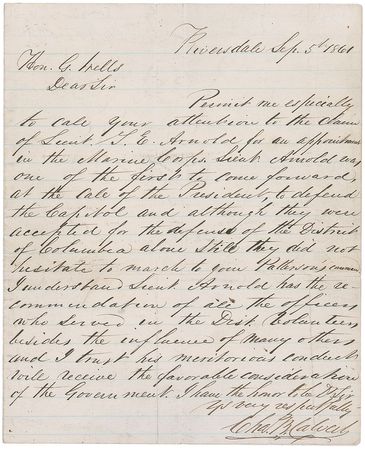 Riversdale Sep. 5th 1861
Hon. G. Wells
Dear Sir
Permit me especially
to call your attention to the claim
of Lieut. T. E. Arnold for an appointment
in the Marine Corps. Lieut Arnold was
one of the first to come forward
at the call of the President, to defend
the Capitol and although they were
accepted for the defense of the District
of Columbia alone still they did not
hesitate to march to join Patterson's
I understand Lieut Arnold has the re-
commendation of all the officers
who served in the Dist. Volunteers
besides the influence of many others
and I trust his meritorious conduct
will receive the favorable consideration
of the Government. I have the honor to be D. Sir
Yr very respectfully
Chas B Calvert